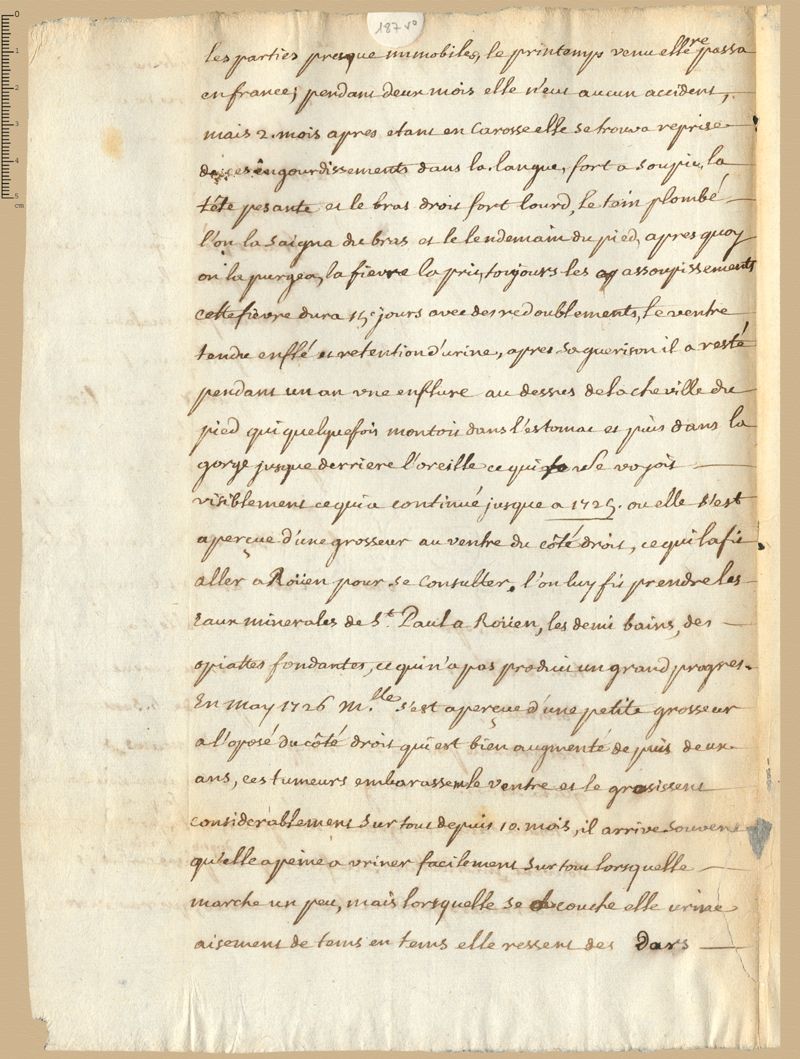 187 vo
les parties presque immobiles, le printemps venu elle repassa
en france; pendant deux mois elle n'eut aucun accident,
mais 2. mois apres etant en Carosse elle se trouva reprise
de ces engourdissements dans la langue, fort assoupie, la
tête pesante et le bras droit fort lourd, le tain plombé
l'on la saigna du bras et le lendemain du pied, apres quoy
on la purgea, la fievre la prit, toujours les assoupissements
cette fievre dura 15 jours avec des redoublements, le ventre
tendu enflé et retention d'urine, apres sa guerison il a resté
pendant un an vne enflure au dessus de la cheville du
pied qui quelquefois montoit dans l'estomac et puis dans la
gorge jusque derriere l'oreille ce qui se voyoit
visiblement ce qui a continué jusque a 1725. ou elle s'est
aperçue d'une grosseur au ventre du côté droit, ce qui la fit
aller a Roüen pour se consulter, l'on luy fit prendre les
Eaux minerales de St. Paul a Roüen, les demi bains, des
opiattes fondantes, ce qui n'a pas produit un grand progres.
En may 1726 Mlle. s'est aperçue d'une petite grosseur
a l'oposé du côté droit qui est bien augmenté depuis deux
ans, ces tumeurs embarassent le ventre et le grosissent
considerablement sur tout depuis 10. mois, il arrive souvent
qu'elle a peine a vriner facilement sur tout lorsquelle
marche un peu, mais lorsquelle se couche elle urine
aisement de tems en tems elle ressent des Dars